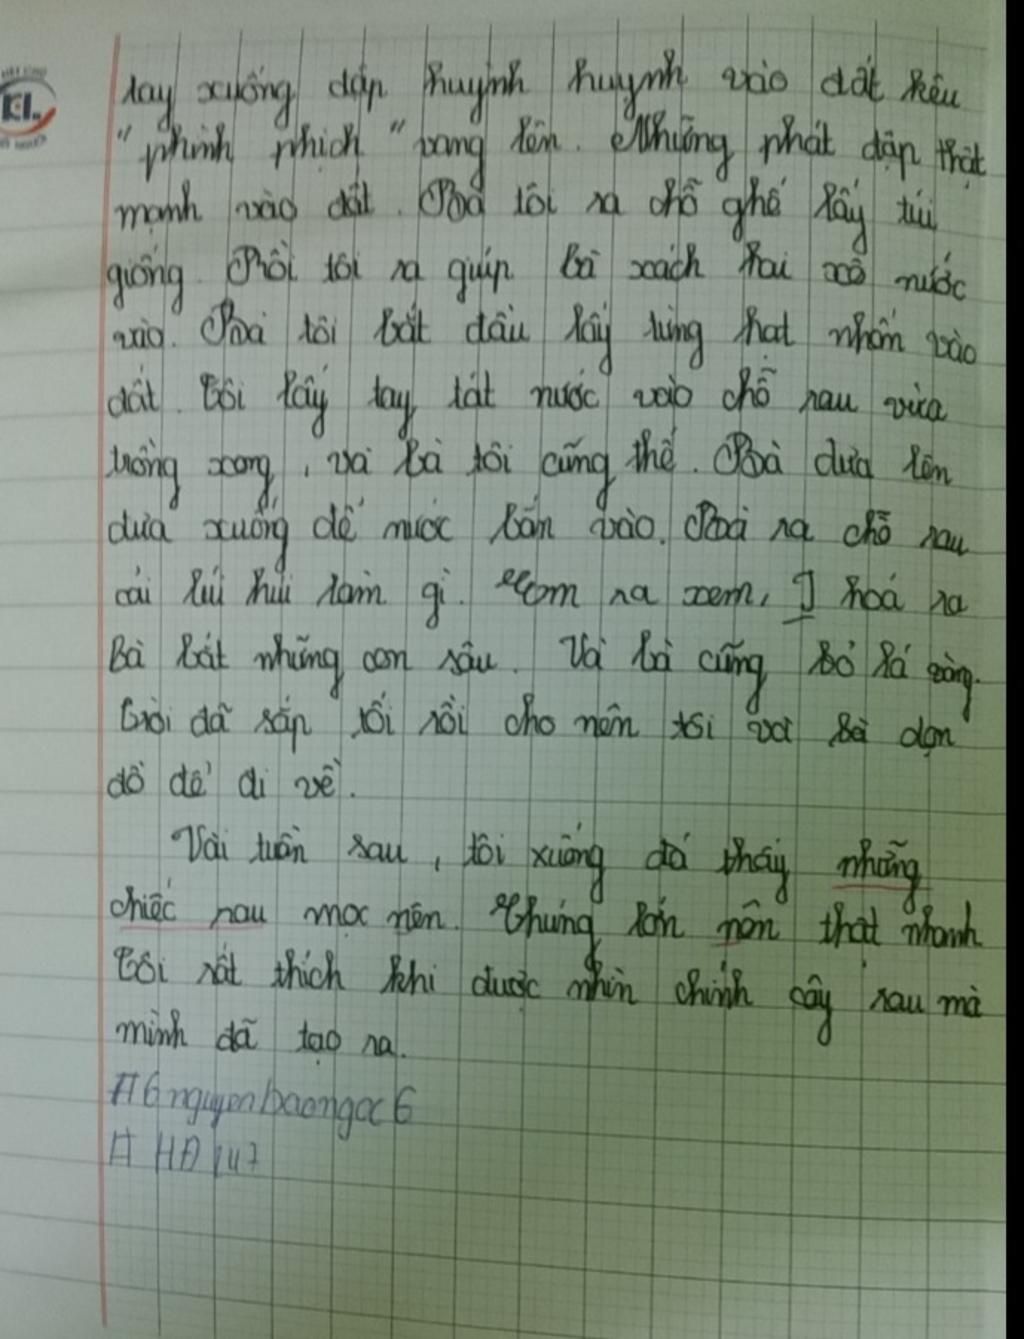 tay xuống dập huỳnh huỳnh vào đất kêu
"phình phịch" vang lên. Những phát dập thật
mạnh vào đất. Bà tôi ra chỗ ghế lấy túi
giống. Rồi tôi ra giúp bà xách hai xô nước
vào. Bà tôi bắt đầu lấy từng hạt nhấn vào
đất. Tôi lấy tay tát nước vào chỗ rau vừa
trồng xong, và bà tôi cũng thế. Bà đưa lên
đưa xuống để nước bắn vào. Bà ra chỗ rau
cải lúi húi làm gì. Tôm ra xem, hoá ra
Bà bắt những con sâu. Và bà cũng bỏ lá vàng.
Giời đã sắp tối rồi cho nên tôi và bà dọn
đồ để đi về.
Vài tuần sau, tôi xuống đã thấy những
chiếc rau mọc nên. Chúng lớn nên thật nhanh
Tôi rất thích khi được nhìn chính cây rau mà
mình đã tạo ra.
#6nguyenbaongoc6
#HĐ147